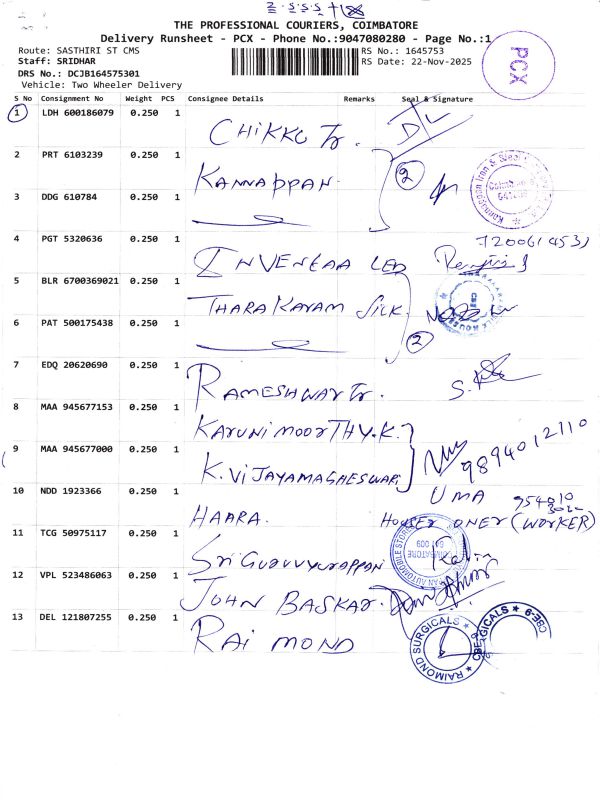 THE PROFESSIONAL COURIERS, COIMBATORE
Delivery Runsheet - PCX - Phone No.:9047080280 - Page No.:1
Route: SASTHIRI ST CMS RS No.: 1645753
Staff: SRIDHAR RS Date: 22-Nov-2025
DRS No.: DCJB164575301
Vehicle: Two Wheeler Delivery
PCX
S No Consignment No Weight PCS Consignee Details Remarks Seal & Signature
1 LDH 600186079 0.250 1 CHIKKU Tr.
2 PRT 6103239 0.250 1 KANNAPPAN. 2
3 DDG 610784 0.250 1
4 PGT 5320636 0.250 1 INVENTAA LED
5 BLR 6700369021 0.250 1 THARAKARAM SILK.
6 PAT 500175438 0.250 1 2
7 EDQ 20620690 0.250 1 RAMESHWAR Tr.
8 MAA 945677153 0.250 1 KARUNIMOORTHY.K.
9 MAA 945677000 0.250 1 K.VIJAYAMAGHESWARI 9894012110
10 NDD 1923366 0.250 1 HAARA. UMA
HOUSE ONER (WORKER)
11 TCG 50975117 0.250 1 Sri GURUVYURAPPAN
12 VPL 523486063 0.250 1 JOHN BASKAR.
13 DEL 121807255 0.250 1 RAIMOND
RAIMOND SURGICALS CBE-9